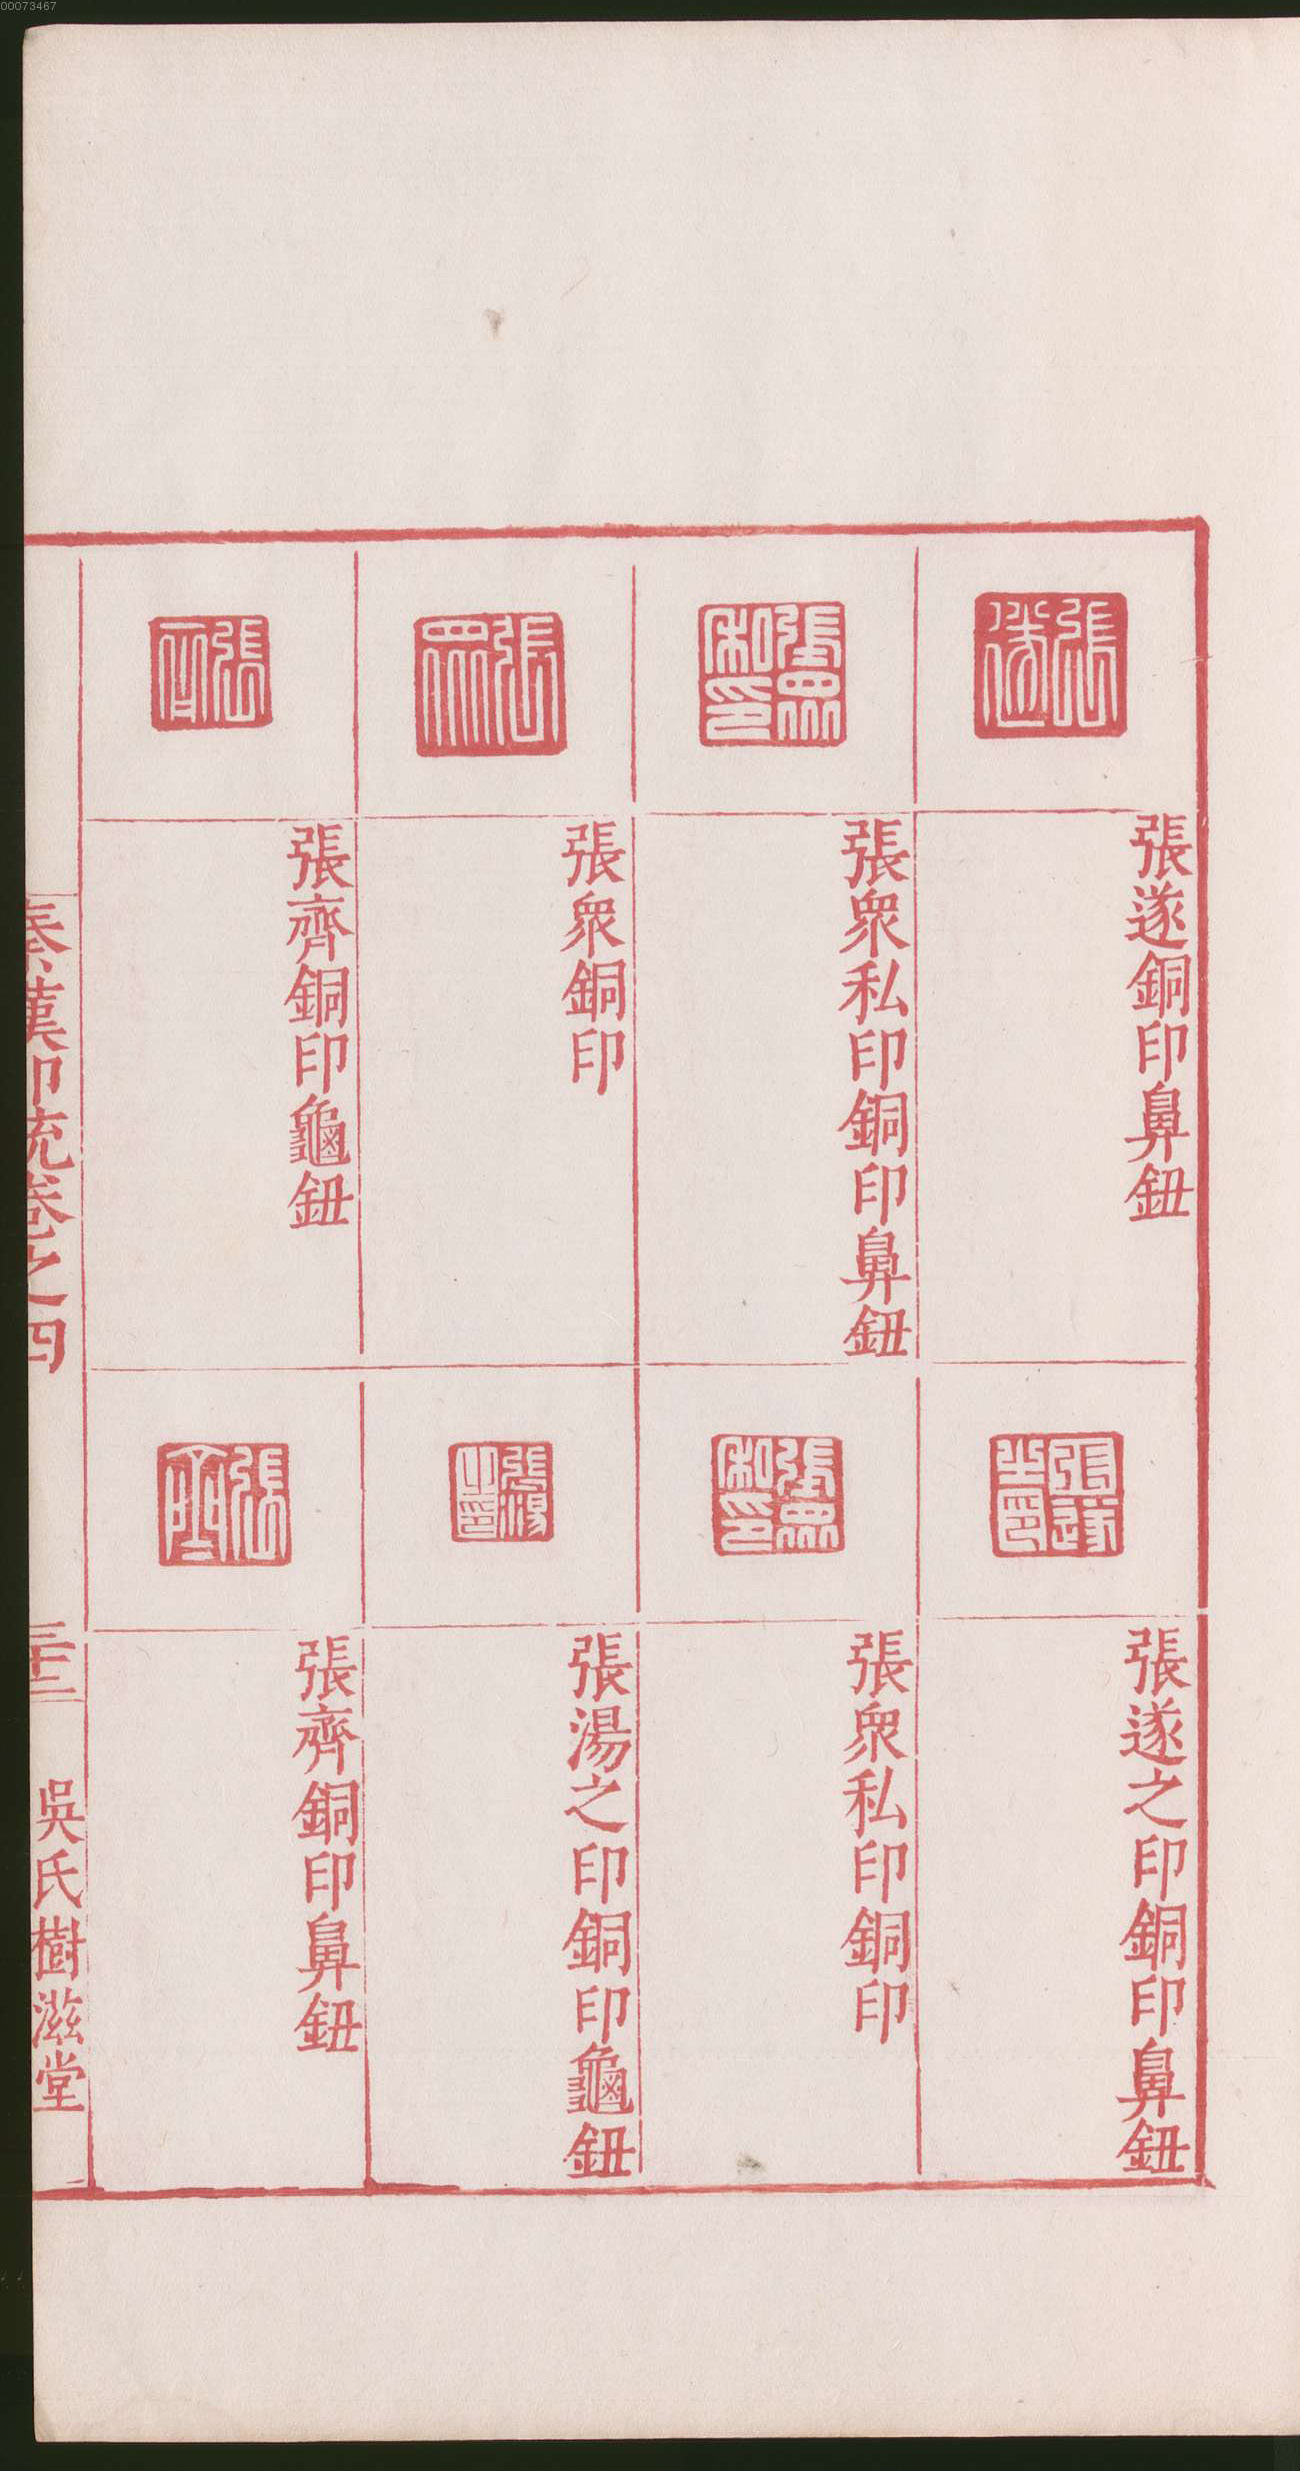 00073467
張遂
張遂銅印鼻鈕
張遂之印
張遂之印銅印鼻鈕
張眾私印
張眾私印銅印鼻鈕
張眾私印
張眾私印銅印
張眾
張眾銅印
張湯之印
張湯之印銅印龜鈕
張齊
張齊銅印龜鈕
張齊
張齊銅印鼻鈕
秦漢印統卷之四
吳氏樹滋堂